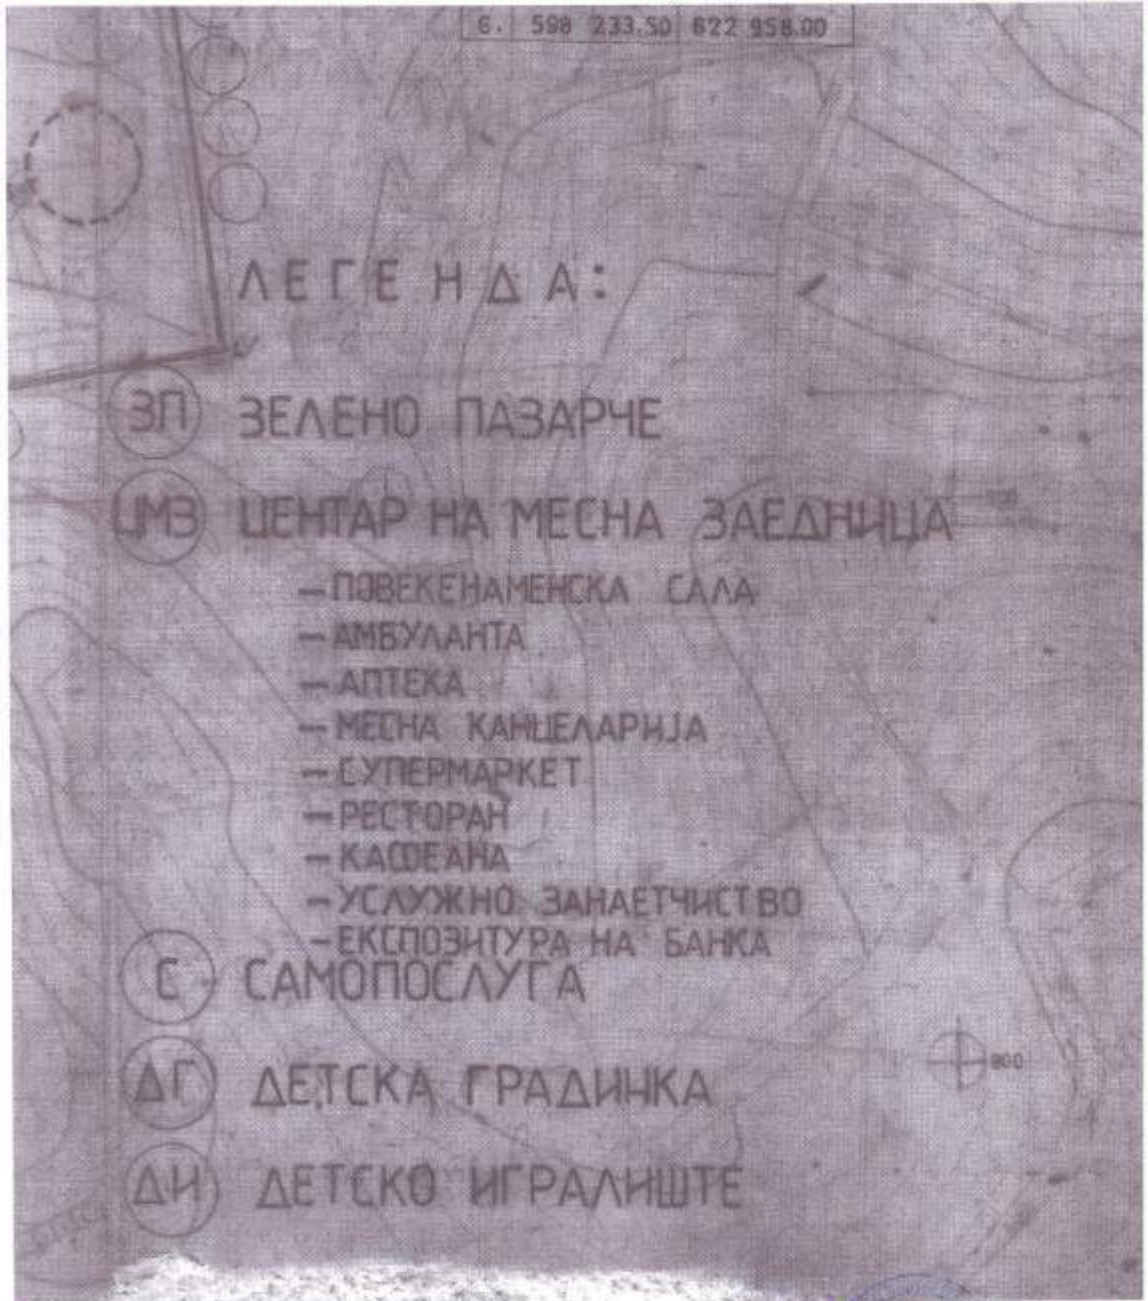 6. 598 233.50 622 958.00
ЛЕГЕНДА:
ЗП ЗЕЛЕНО ПАЗАРЧЕ
ЦМЗ ЦЕНТАР НА МЕСНА ЗАЕДНИЦА
-ПОВЕКЕНАМЕНСКА САЛА
-АМБУЛАНТА
-АПТЕКА
-МЕСНА КАНЦЕЛАРИЈА
-СУПЕРМАРКЕТ
-РЕСТОРАН
-КАФЕАНА
-УСЛУЖНО ЗАНАЕТЧИСТВО
-ЕКСПОЗИТУРА НА БАНКА
С САМОПОСЛУГА
800
ДГ ДЕТСКА ГРАДИНКА
ДИ ДЕТСКО ИГРАЛИШТЕ